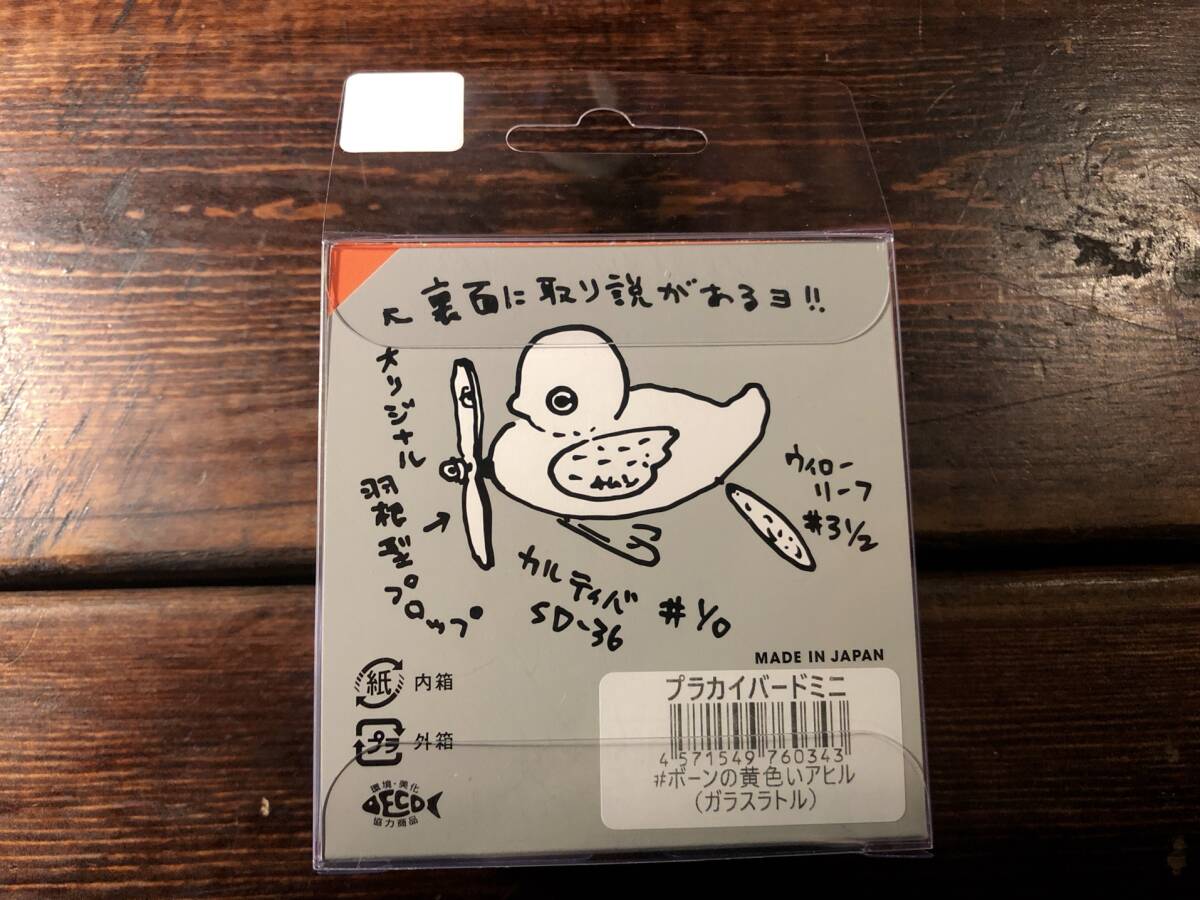 裏面に取り説があるヨ!!
オリジナル
羽根型プロップ
ウィロー
リーフ
#3 1/2
カルティバ
SD-36
#1/0
MADE IN JAPAN
紙 内箱
プラ 外箱
環境・美化
ECO
協力商品
プラカイバードミニ
4 571549 760343
#ボーンの黄色いアヒル
(ガラスラトル)